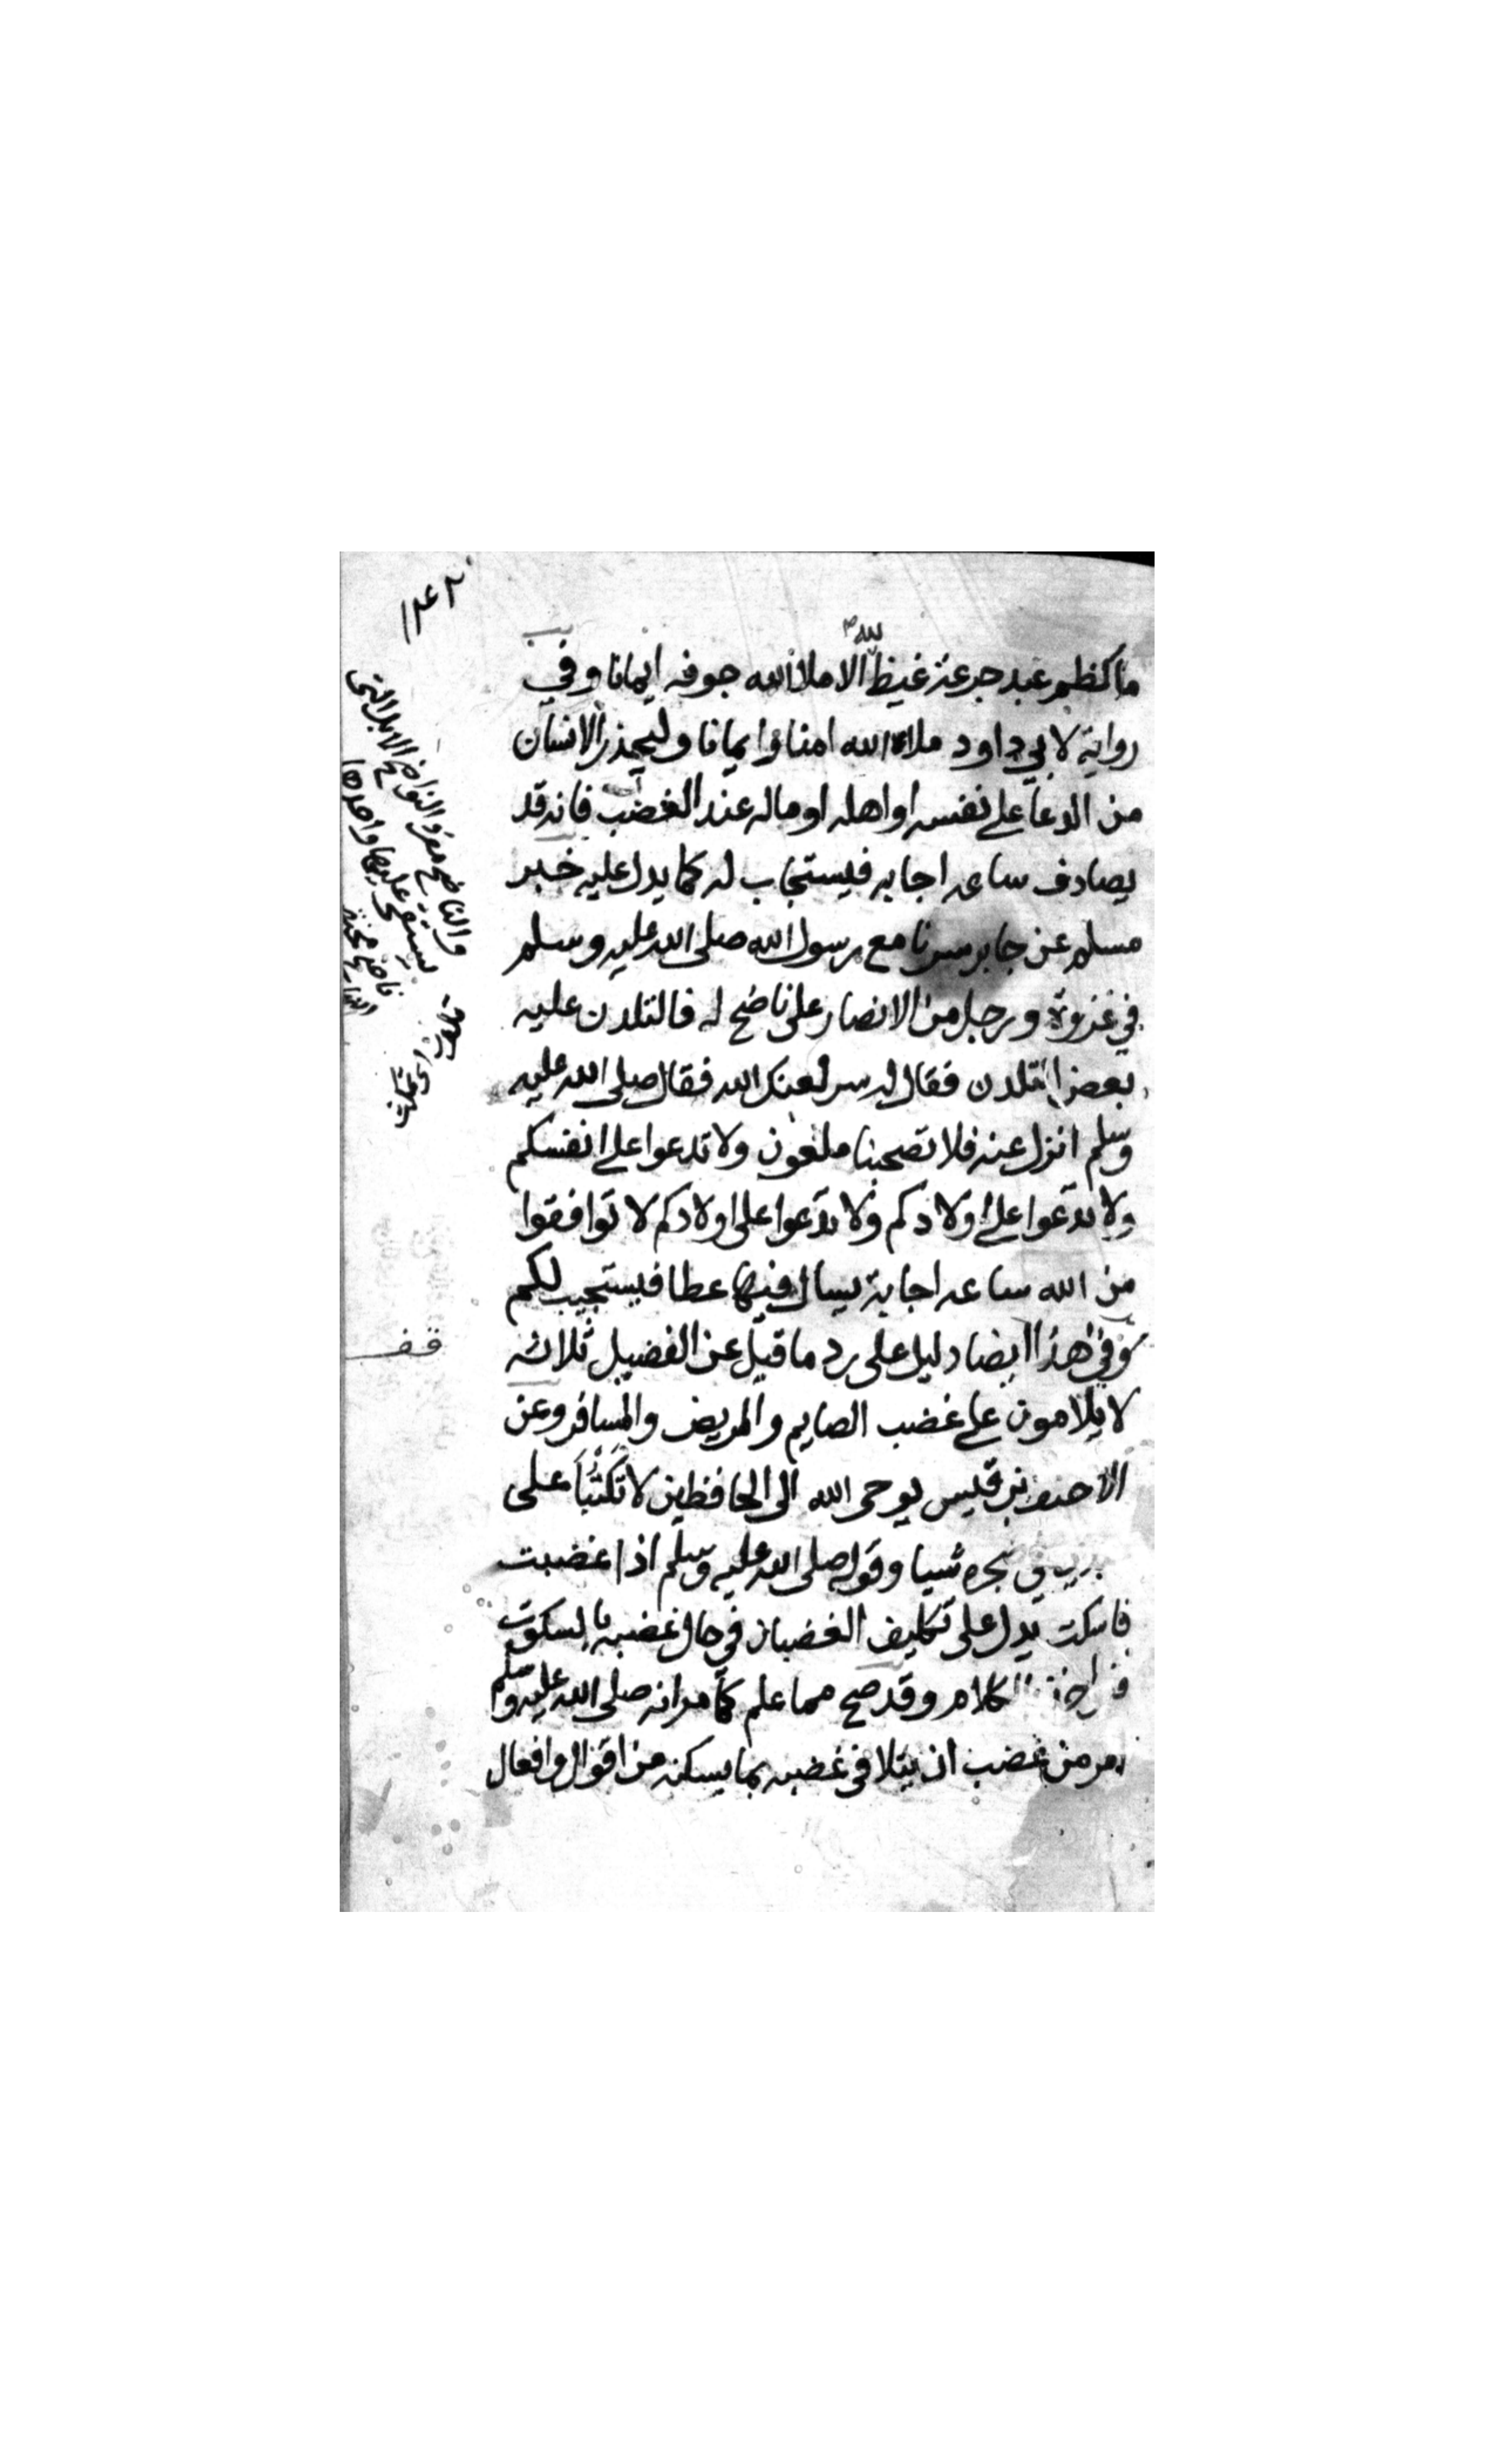 ما كظم عبد جرعة غيظ لله الا ملا الله جوفه ايمانا وفي
رواية لابي داود ملاه الله امنا وايمانا وليحذر الانسان
من الدعا على نفسه او اهله او ماله عند الغضب فانه قد
يصادف ساعه اجابه فيستجاب له كما يدل عليه خبر
مسلم عن جابر سرنا مع رسول الله صلى الله عليه وسلم
في غزوة ورجل من الانصار على ناضح له فالتلدن عليه
بعض التلدن فقال له سر لعنك الله فقال صلى الله عليه
وسلم انزل عنه فلا تصحبنا ملعون ولا تدعوا على انفسكم
ولا تدعوا على اولادكم ولا تدعوا على اولادكم لا توافقوا
من الله ساعه اجابة يسال فيها عطا فيستجيب لكم
وفي هذا ايضا دليل على رد ما قيل عن الفضيل ثلاثه
لا يلامون على غضب الصايم والمريض والمسافر وعن
الاحنف بن قيس يوحى الله الى الحافظين لا تكتبا على
في ضجره شيا وقوله صلى الله عليه وسلم اذا غضبت
فاسكت يدل على تكليف الغضبان في حال غضبه بالسكوت
الكلام وقد صح مما علم كما مر انه صلى الله عليه وسلم
امر من غضب ان يتلافى غضبه بما يسكنه من اقوال وافعال
والناضح مفرد النواضح الابل التي
يستقى عليها واحدها
ناضح
قف